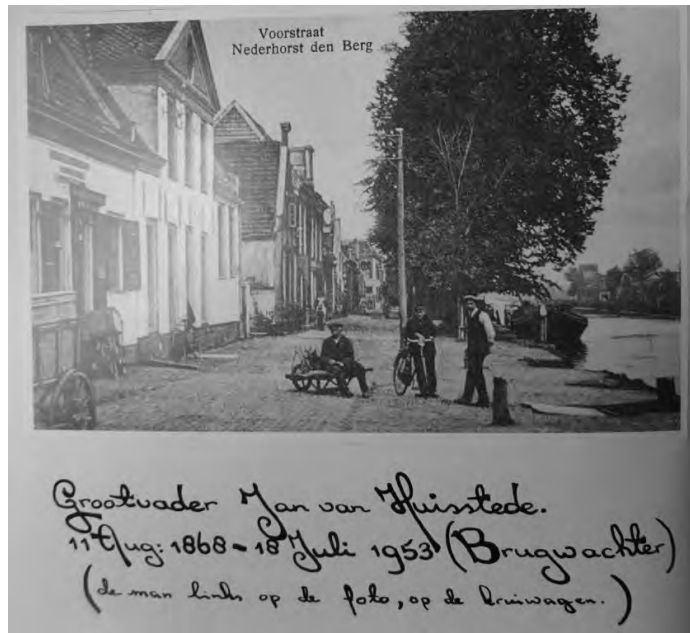 Voorstraat
Nederhorst den Berg
Grootvader Jan van Huisstede.
11 Aug: 1868 - 18 Juli 1953 (Brugwachter)
(de man links op de foto, op de kruiwagen.)